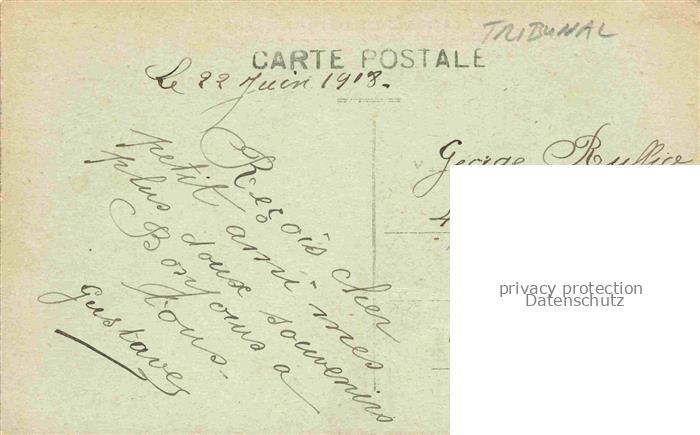 TRIBUNAL
CARTE POSTALE
Le 22 Juin 1918.
Reçois cher
petit ami mes
plus doux souvenirs
Bonjour a
tous.
Gustave
George Rullier
4
privacy protection
Datenschutz